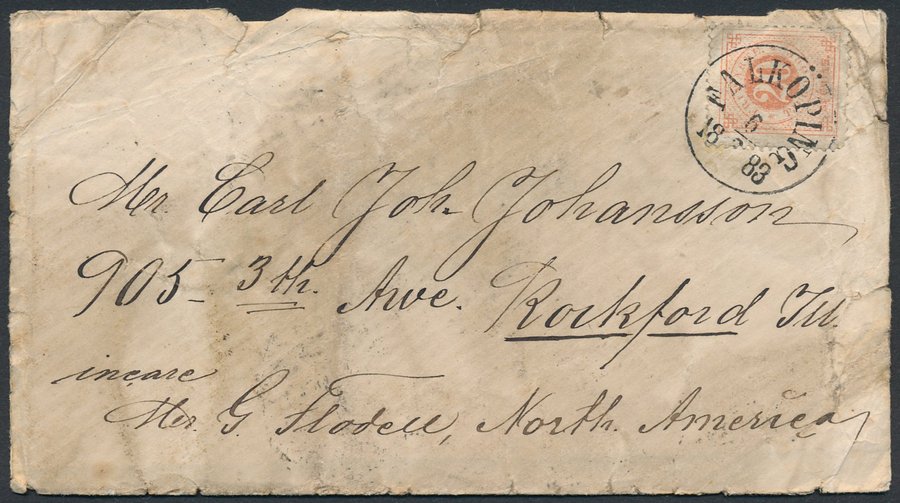 FALKÖPING
6
18 83
20
Mr. Carl Joh. Johansson
905 3th. Awe. Rockford Ill.
incare
Mr G. Flodell, North. America,